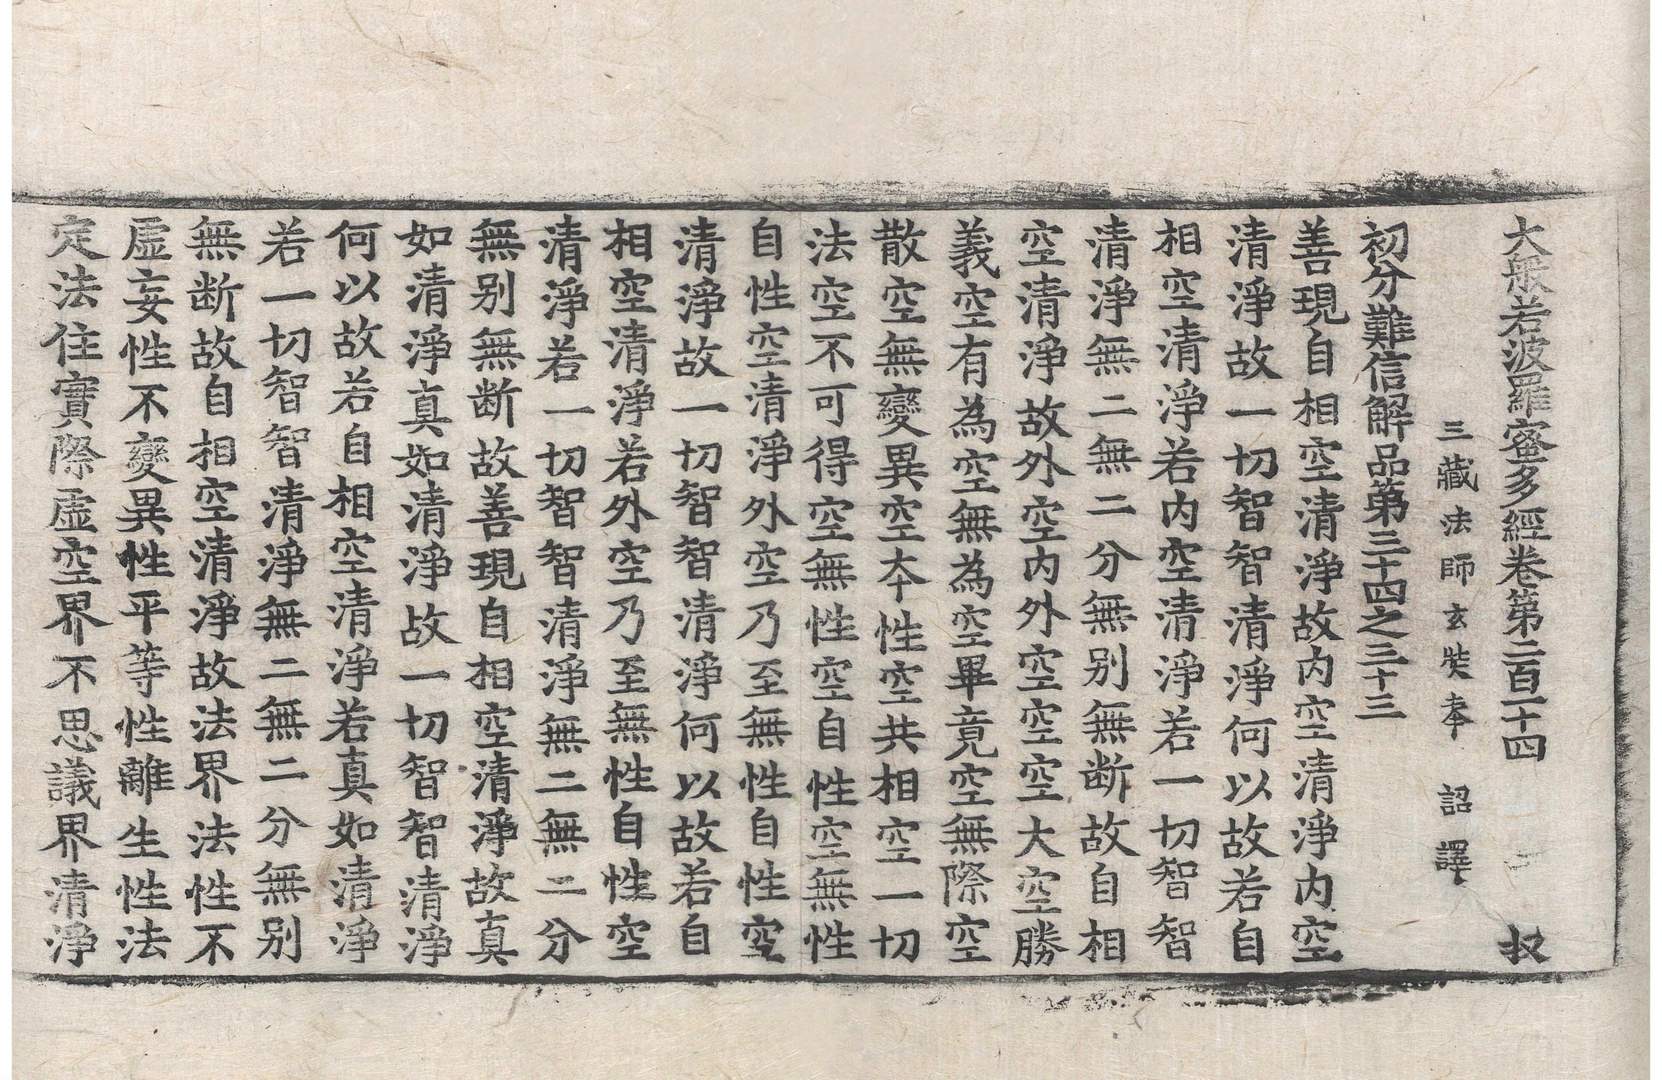 大般若波羅蜜多經卷第二百一十四 汉
三藏法師玄奘奉 詔譯
初分難信解品第三十四之三十三
善現自相空清淨故内空清淨内空
清淨故一切智智清淨何以故若自
相空清淨若内空清淨若一切智智
清淨無二無二分無别無断故自相
空清淨故外空内外空空空大空勝
義空有為空無為空畢竟空無際空
散空無變異空本性空共相空一切
法空不可得空無性空自性空無性
自性空清淨外空乃至無性自性空
清淨故一切智智清淨何以故若自
相空清淨若外空乃至無性自性空
清淨若一切智智清淨無二無二分
無别無断故善現自相空清淨故真
如清淨真如清淨故一切智智清淨
何以故若自相空清淨若真如清淨
若一切智智清淨無二無二分無别
無断故自相空清淨故法界法性不
虛妄性不變異性平等性離生性法
定法住實際虛空界不思議界清淨